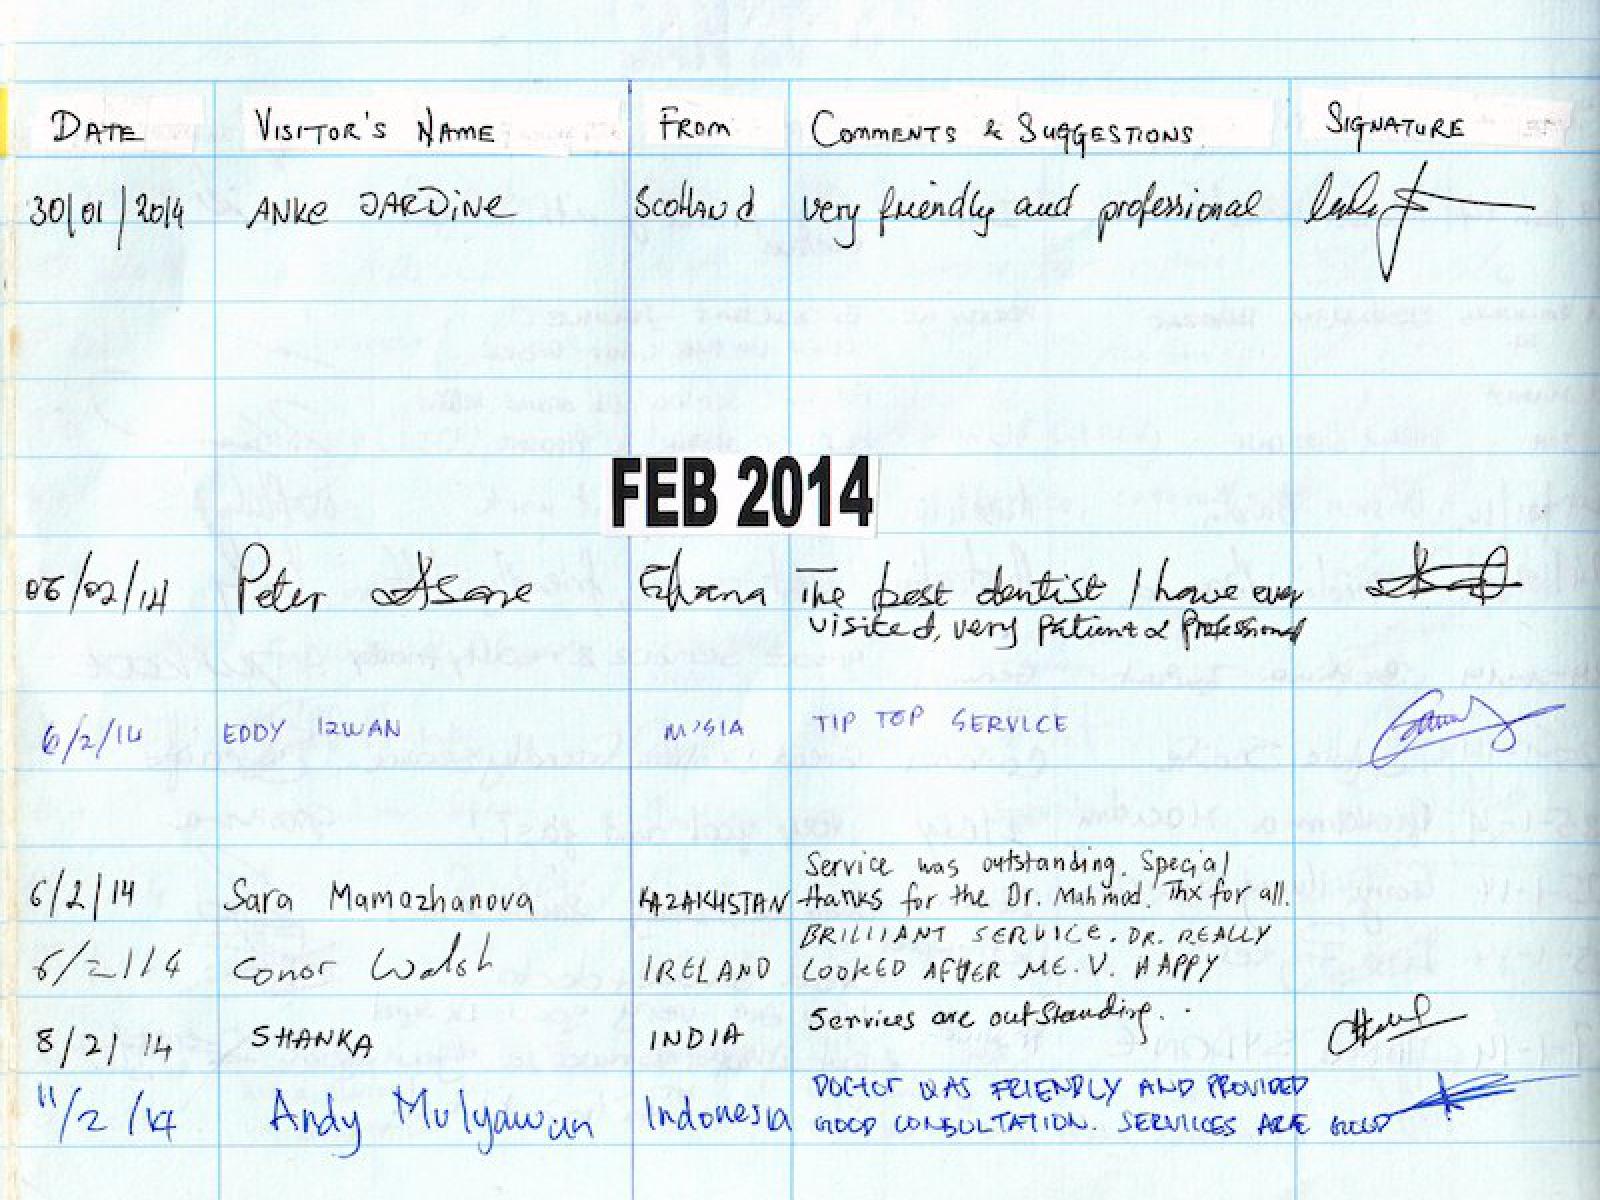 DATE VISITOR'S NAME FROM COMMENTS & SUGGESTIONS SIGNATURE
30/01/2014 ANKE JARDINE Scotland very friendly and professional
FEB 2014
06/02/14 Peter Asare Ghana The best dentist I have ever
visited, very patient & professional
6/2/14 EDDY IZWAN M'SIA TIP TOP SERVICE
Service was outstanding. Special
6/2/14 Sara Mamazhanova KAZAKHSTAN thanks for the Dr. Mahmod. Thx for all.
BRILLIANT SERVICE. DR. REALLY
6/2/14 Conor Walsh IRELAND LOOKED AFTER ME. V. HAPPY
Services are outstanding..
8/2/14 SHANKA INDIA
DOCTOR WAS FRIENDLY AND PROVIDED
11/2/14 Andy Mulyawan Indonesia GOOD CONSULTATION. SERVICES ARE GOOD